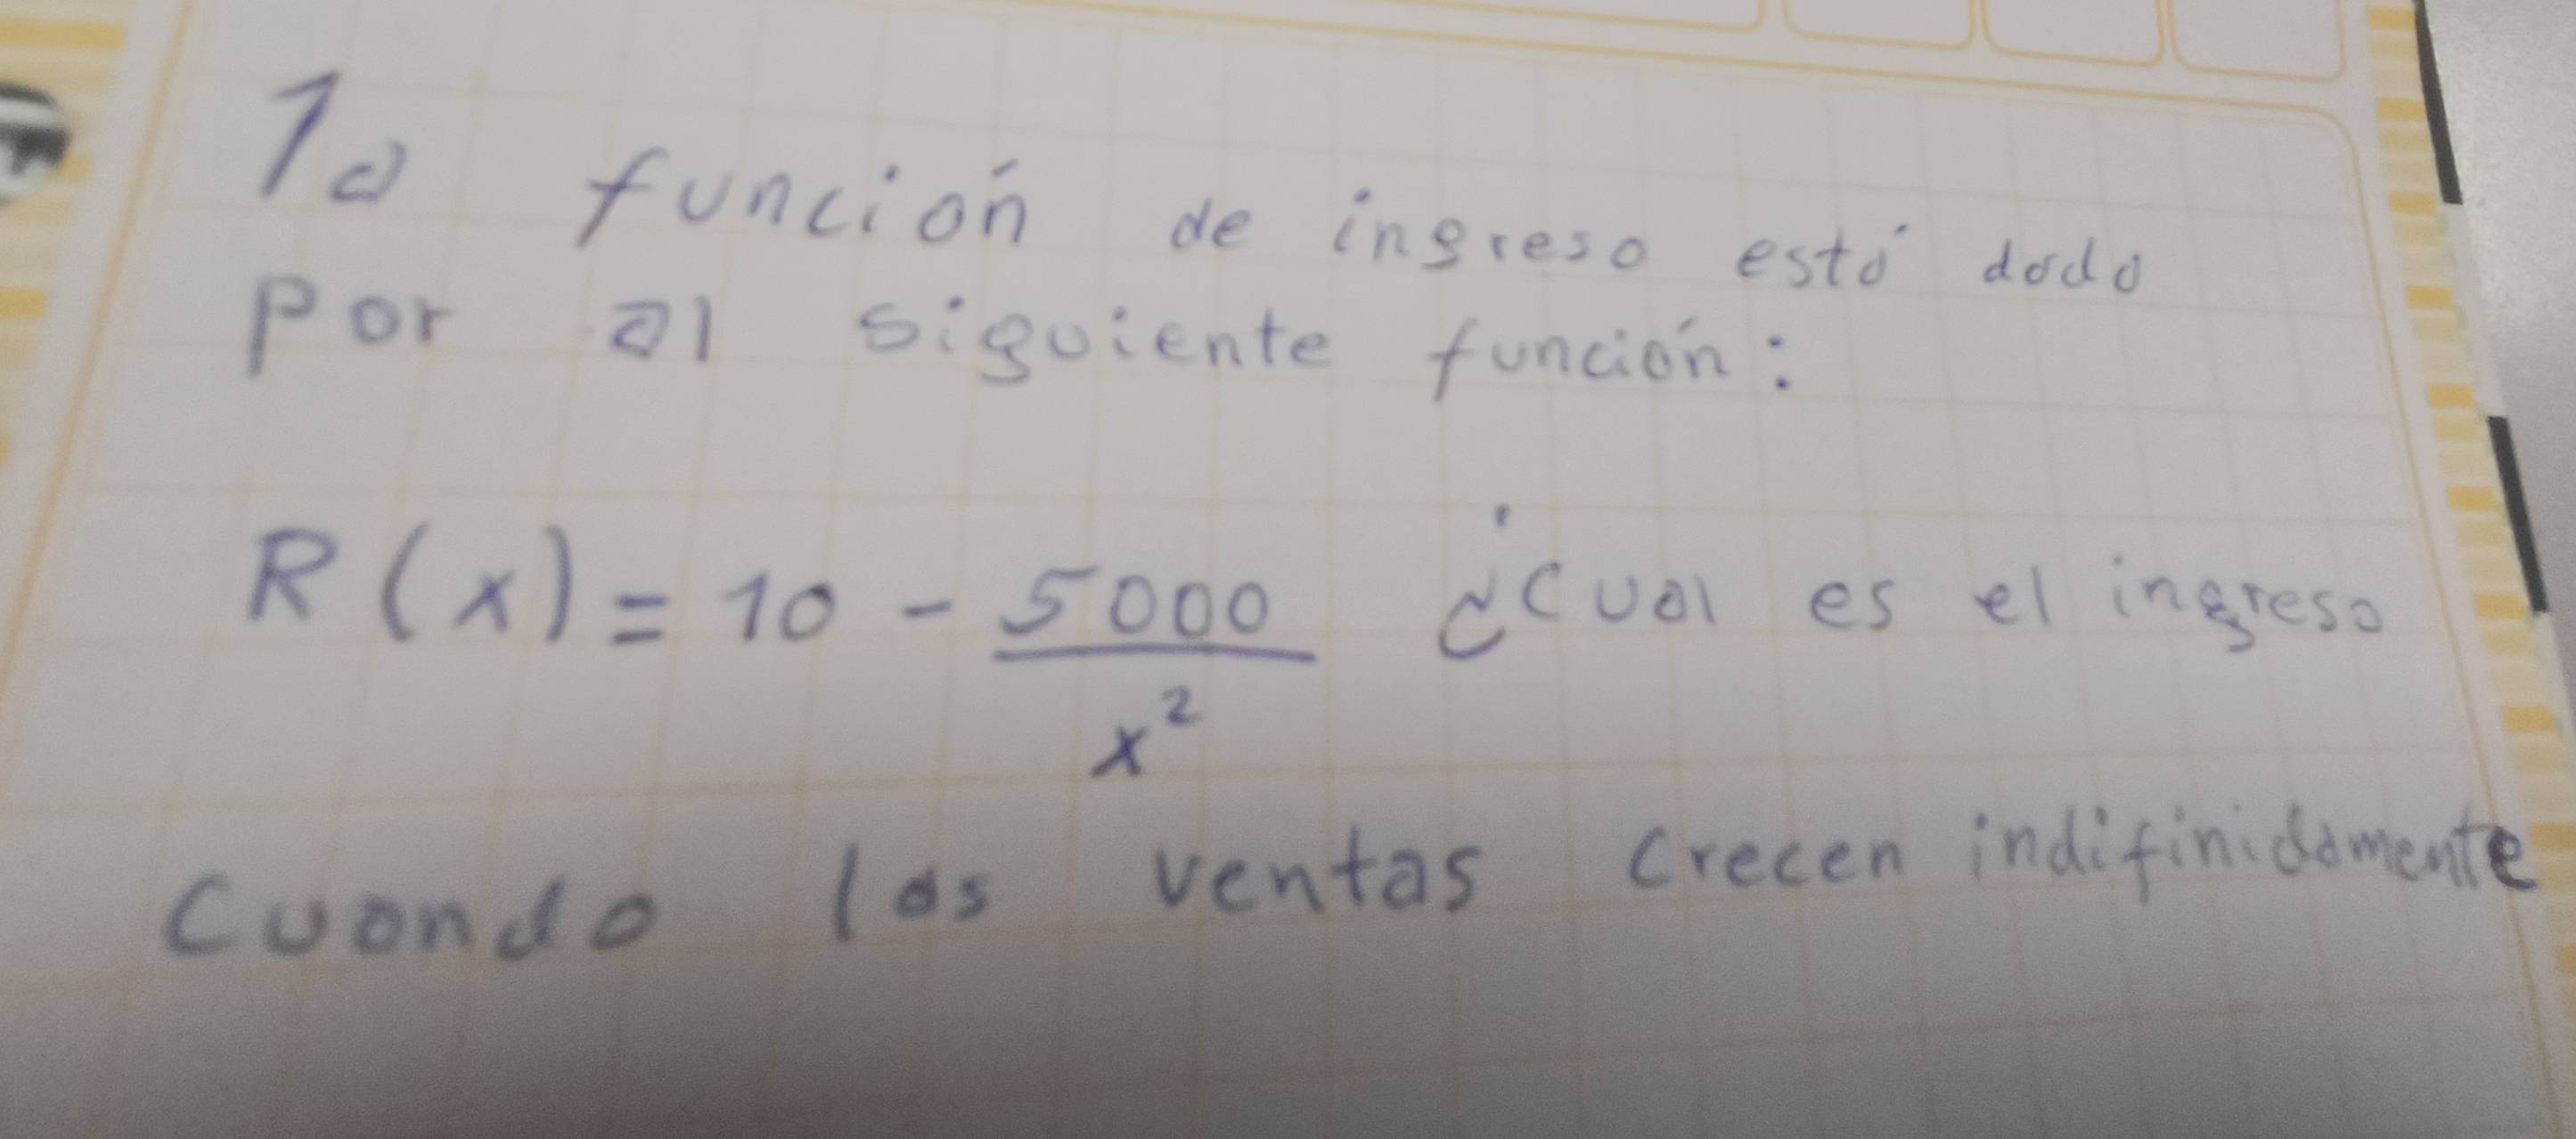 la función de ingreso está dada
por al siguiente función:
R(x) = 10 - 5000/x² ¿Cual es el ingreso
Cuando las ventas crecen indifinidamente